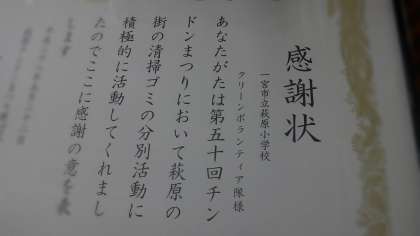 感謝状
一宮市立萩原小学校
クリーンボランティア隊様
あなたがたは第五十回チン
ドンまつりにおいて萩原の
街の清掃ゴミの分別活動に
積極的に活動してくれまし
たのでここに感謝の意を表
します